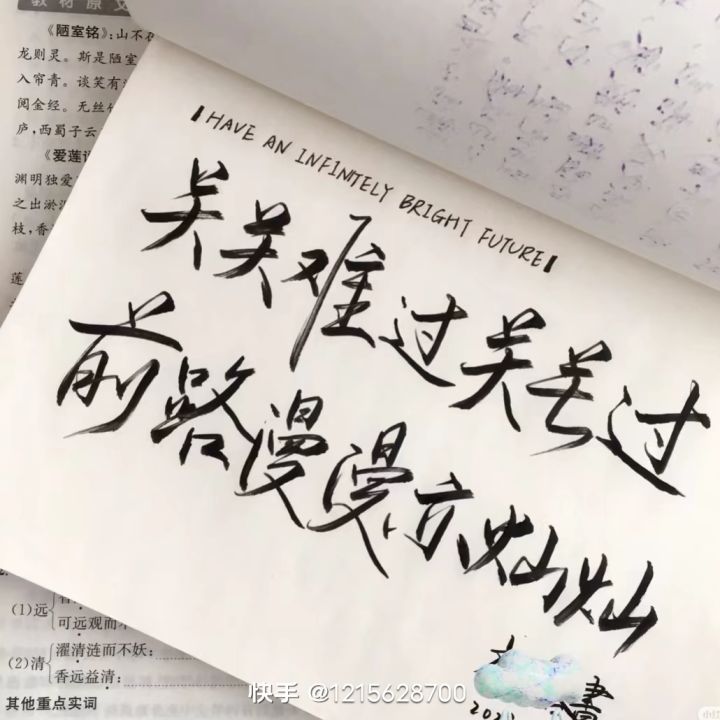 教材原文
《陋室铭》:山不在
龙则灵。斯是陋室
入帘青。谈笑有
阅金经。无丝
庐,西蜀子云
《爱莲说
渊明独爱
之出淤泥
枝,香
莲
HAVE AN INFINITELY BRIGHT FUTURE
关关难过关关过
前路漫漫亦灿灿
书
202
(1)远
可远观而不
(2)清
濯清涟而不妖:
香远益清:
其他重点实词
快手 @1215628700